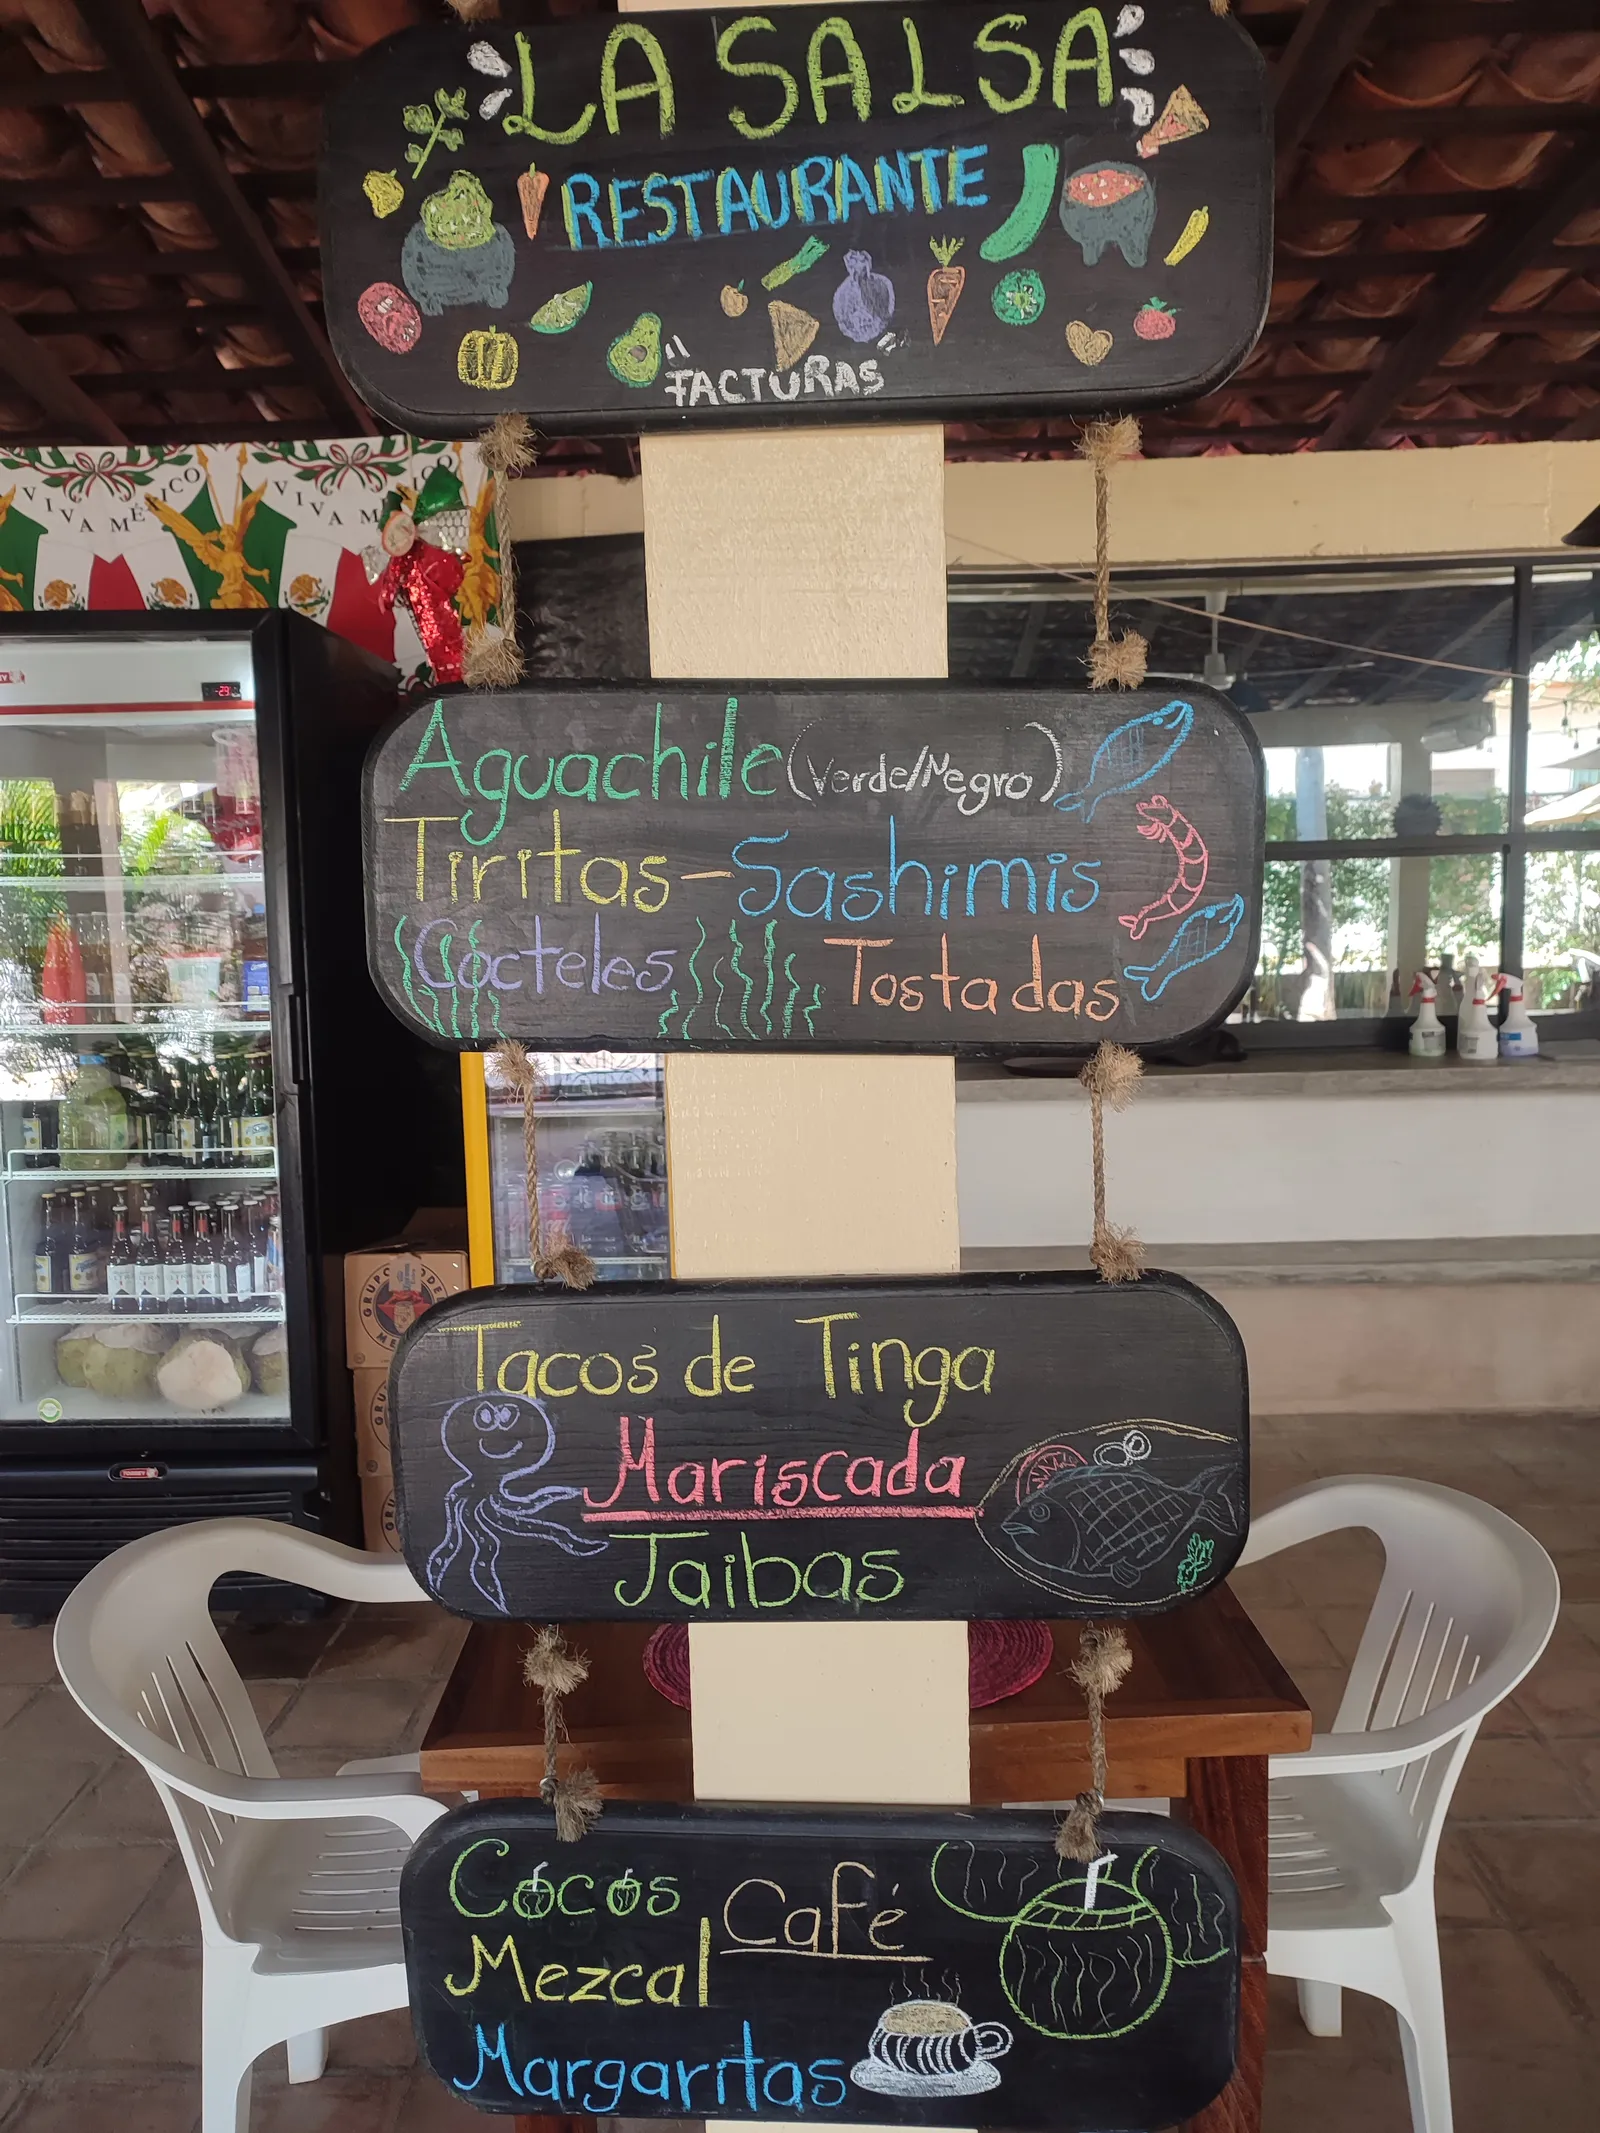 LA SALSA
RESTAURANTE
"FACTURAS"
VIVA MÉXICO
VIVA M
ICO
Aguachile (Verde/Negro)
Tiritas - Sashimis
Cocteles Tostadas
GRUPO MODE
Tacos de Tinga
Mariscada
Jaibas
Cocos Café
Mezcal
Margaritas